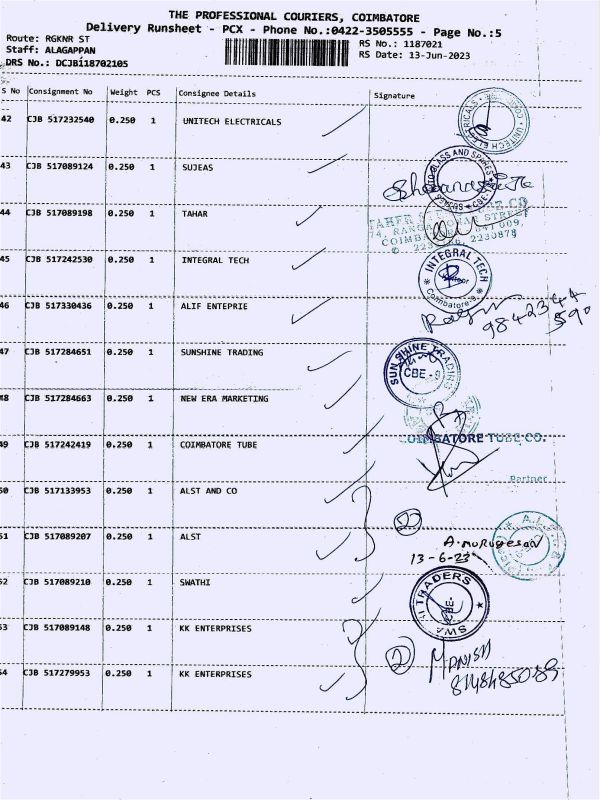 THE PROFESSIONAL COURIERS, COIMBATORE
Delivery Runsheet - PCX - Phone No.:0422-3505555 - Page No.:5
Route: RGKNR ST
RS No.: 1187021
Staff: ALAGAPPAN
RS Date: 13-Jun-2023
DRS No.: DCJB118702105
S No Consignment No Weight PCS Consignee Details Signature
42 CJB 517232540 0.250 1 UNITECH ELECTRICALS
43 CJB 517089124 0.250 1 SUJEAS
GLASS AND SPARES
CBE
44 CJB 517089198 0.250 1 TAHAR
TAHER
COIMB
2230879
45 CJB 517242530 0.250 1 INTEGRAL TECH
INTEGRAL TECH
Coimbatore-9
46 CJB 517330436 0.250 1 ALIF ENTEPRIE
9842344
590
47 CJB 517284651 0.250 1 SUNSHINE TRADING
SUN SHINE TRADING
CBE - 9
48 CJB 517284663 0.250 1 NEW ERA MARKETING
49 CJB 517242419 0.250 1 COIMBATORE TUBE
COIMBATORE TUBE CO.
Partner
50 CJB 517133953 0.250 1 ALST AND CO
2
51 CJB 517089207 0.250 1 ALST
A.muRugesan
13-6-23
52 CJB 517089210 0.250 1 SWATHI
SWA TI TRADERS
CBE-
53 CJB 517089148 0.250 1 KK ENTERPRISES
2 MANISH
54 CJB 517279953 0.250 1 KK ENTERPRISES